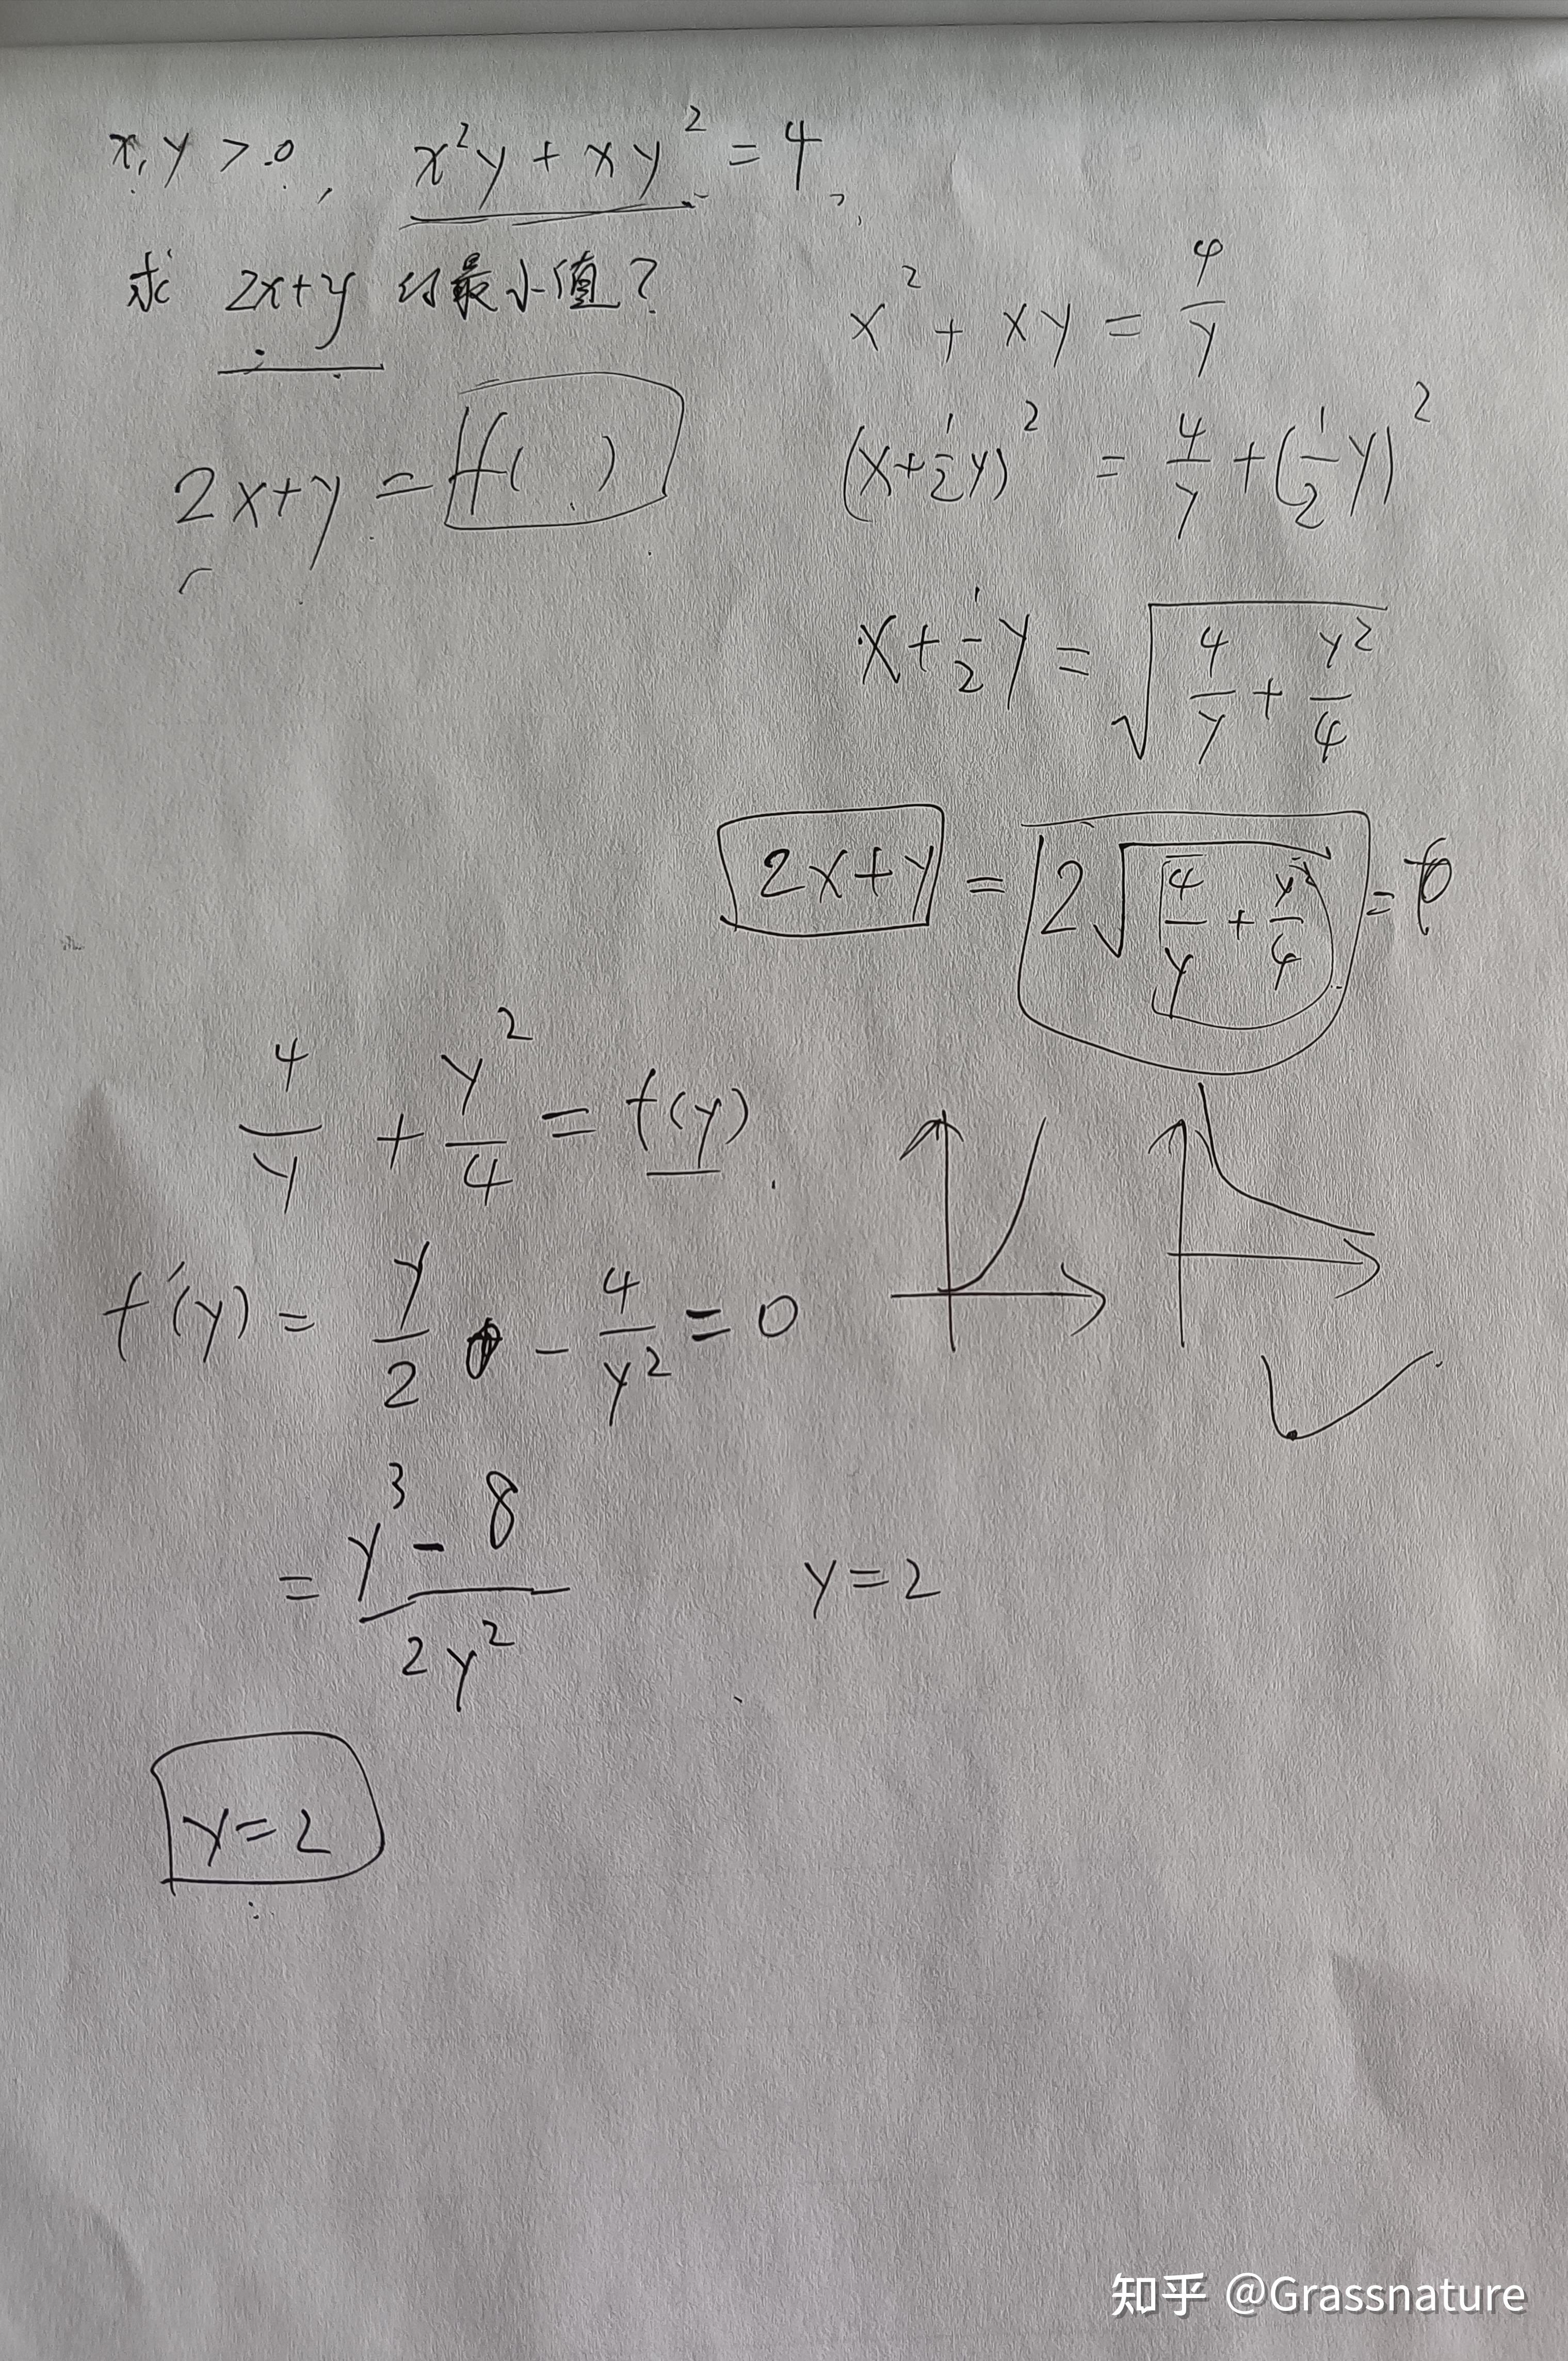 x, y > 0, x²y + xy² = 4,
求 2x+y 的最小值?
x² + xy = 4/y
2x+y = f( )
(x+½y)² = 4/y + (½y)²
x+½y = √(4/y + y²/4)
2x+y = 2√(4/y + y²/4) =
4/y + y²/4 = f(y)
f'(y) = y/2 - 4/y² = 0
= (y³ - 8)/(2y²)
y=2
y=2
知乎 @Grassnature